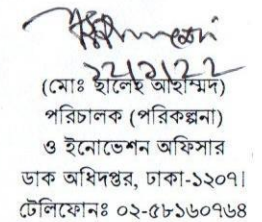 ১২/১/২২
(মোঃ ছালেহ আহাম্মদ)
পরিচালক (পরিকল্পনা)
ও ইনোভেশন অফিসার
ডাক অধিদপ্তর, ঢাকা-১২০৭।
টেলিফোনঃ ০২-৫৮১৬০৭৬৪